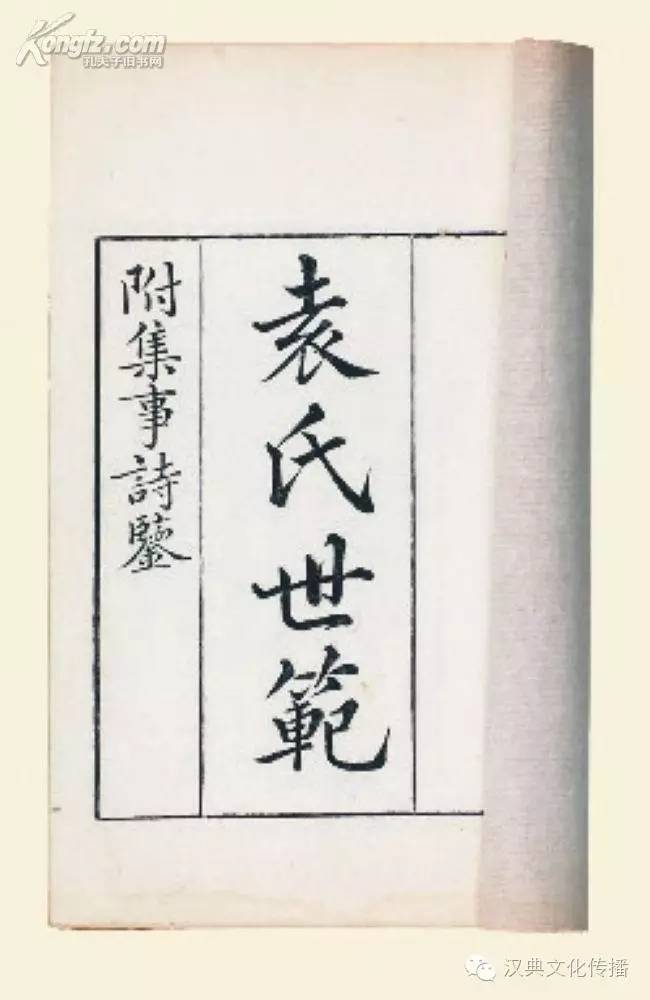 Kongfz.com
孔夫子旧书网
袁氏世範
附集事詩鑒
汉典文化传播